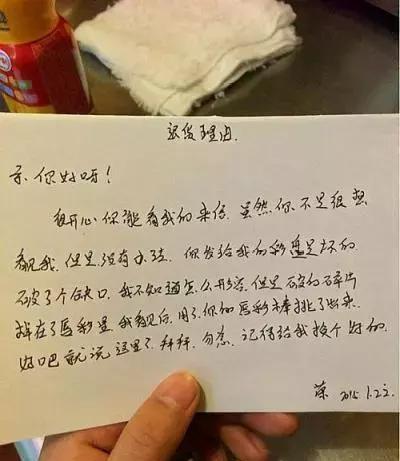 退货理由.
亲.你好呀!
很开心你能看我的来信.虽然你不是很想
我.但是没有办法.你发给我的彩盘是坏的
破了个缺口.我不知道怎么形容.但是破的碎片
掉在了唇彩里.我后.用了你的唇彩棒挑了出来
好吧就说这里了.拜拜.勿念.记得给我换个好的.
2015.1.22.